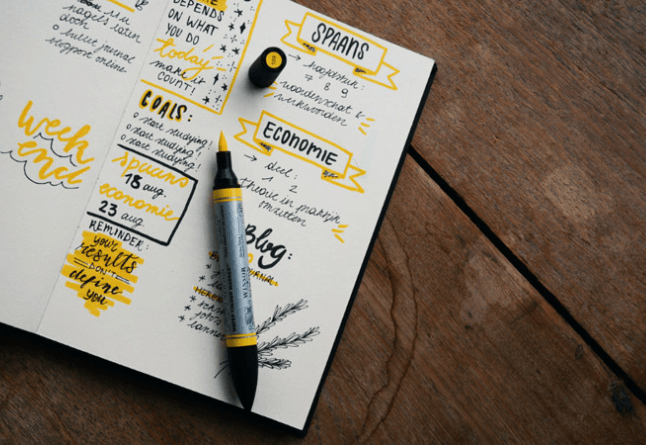 nagels laten
doen
bullet journal
blogpost online
Week
end
DEPENDS
ON WHAT
YOU DO!
today
make it
COUNT!
GOALS:
start studying!
start studying!
start studying!
spaans
18 aug.
economie
23 aug.
REMINDER:
your
results
DON'T
define
you
SPAANS
→ hoofdstuk:
7 8 9
woordenschat &
werkwoorden
ECONOMIE
→ deel:
1 2
theorie in praktijk
omzetten
Blog:
WINSOR